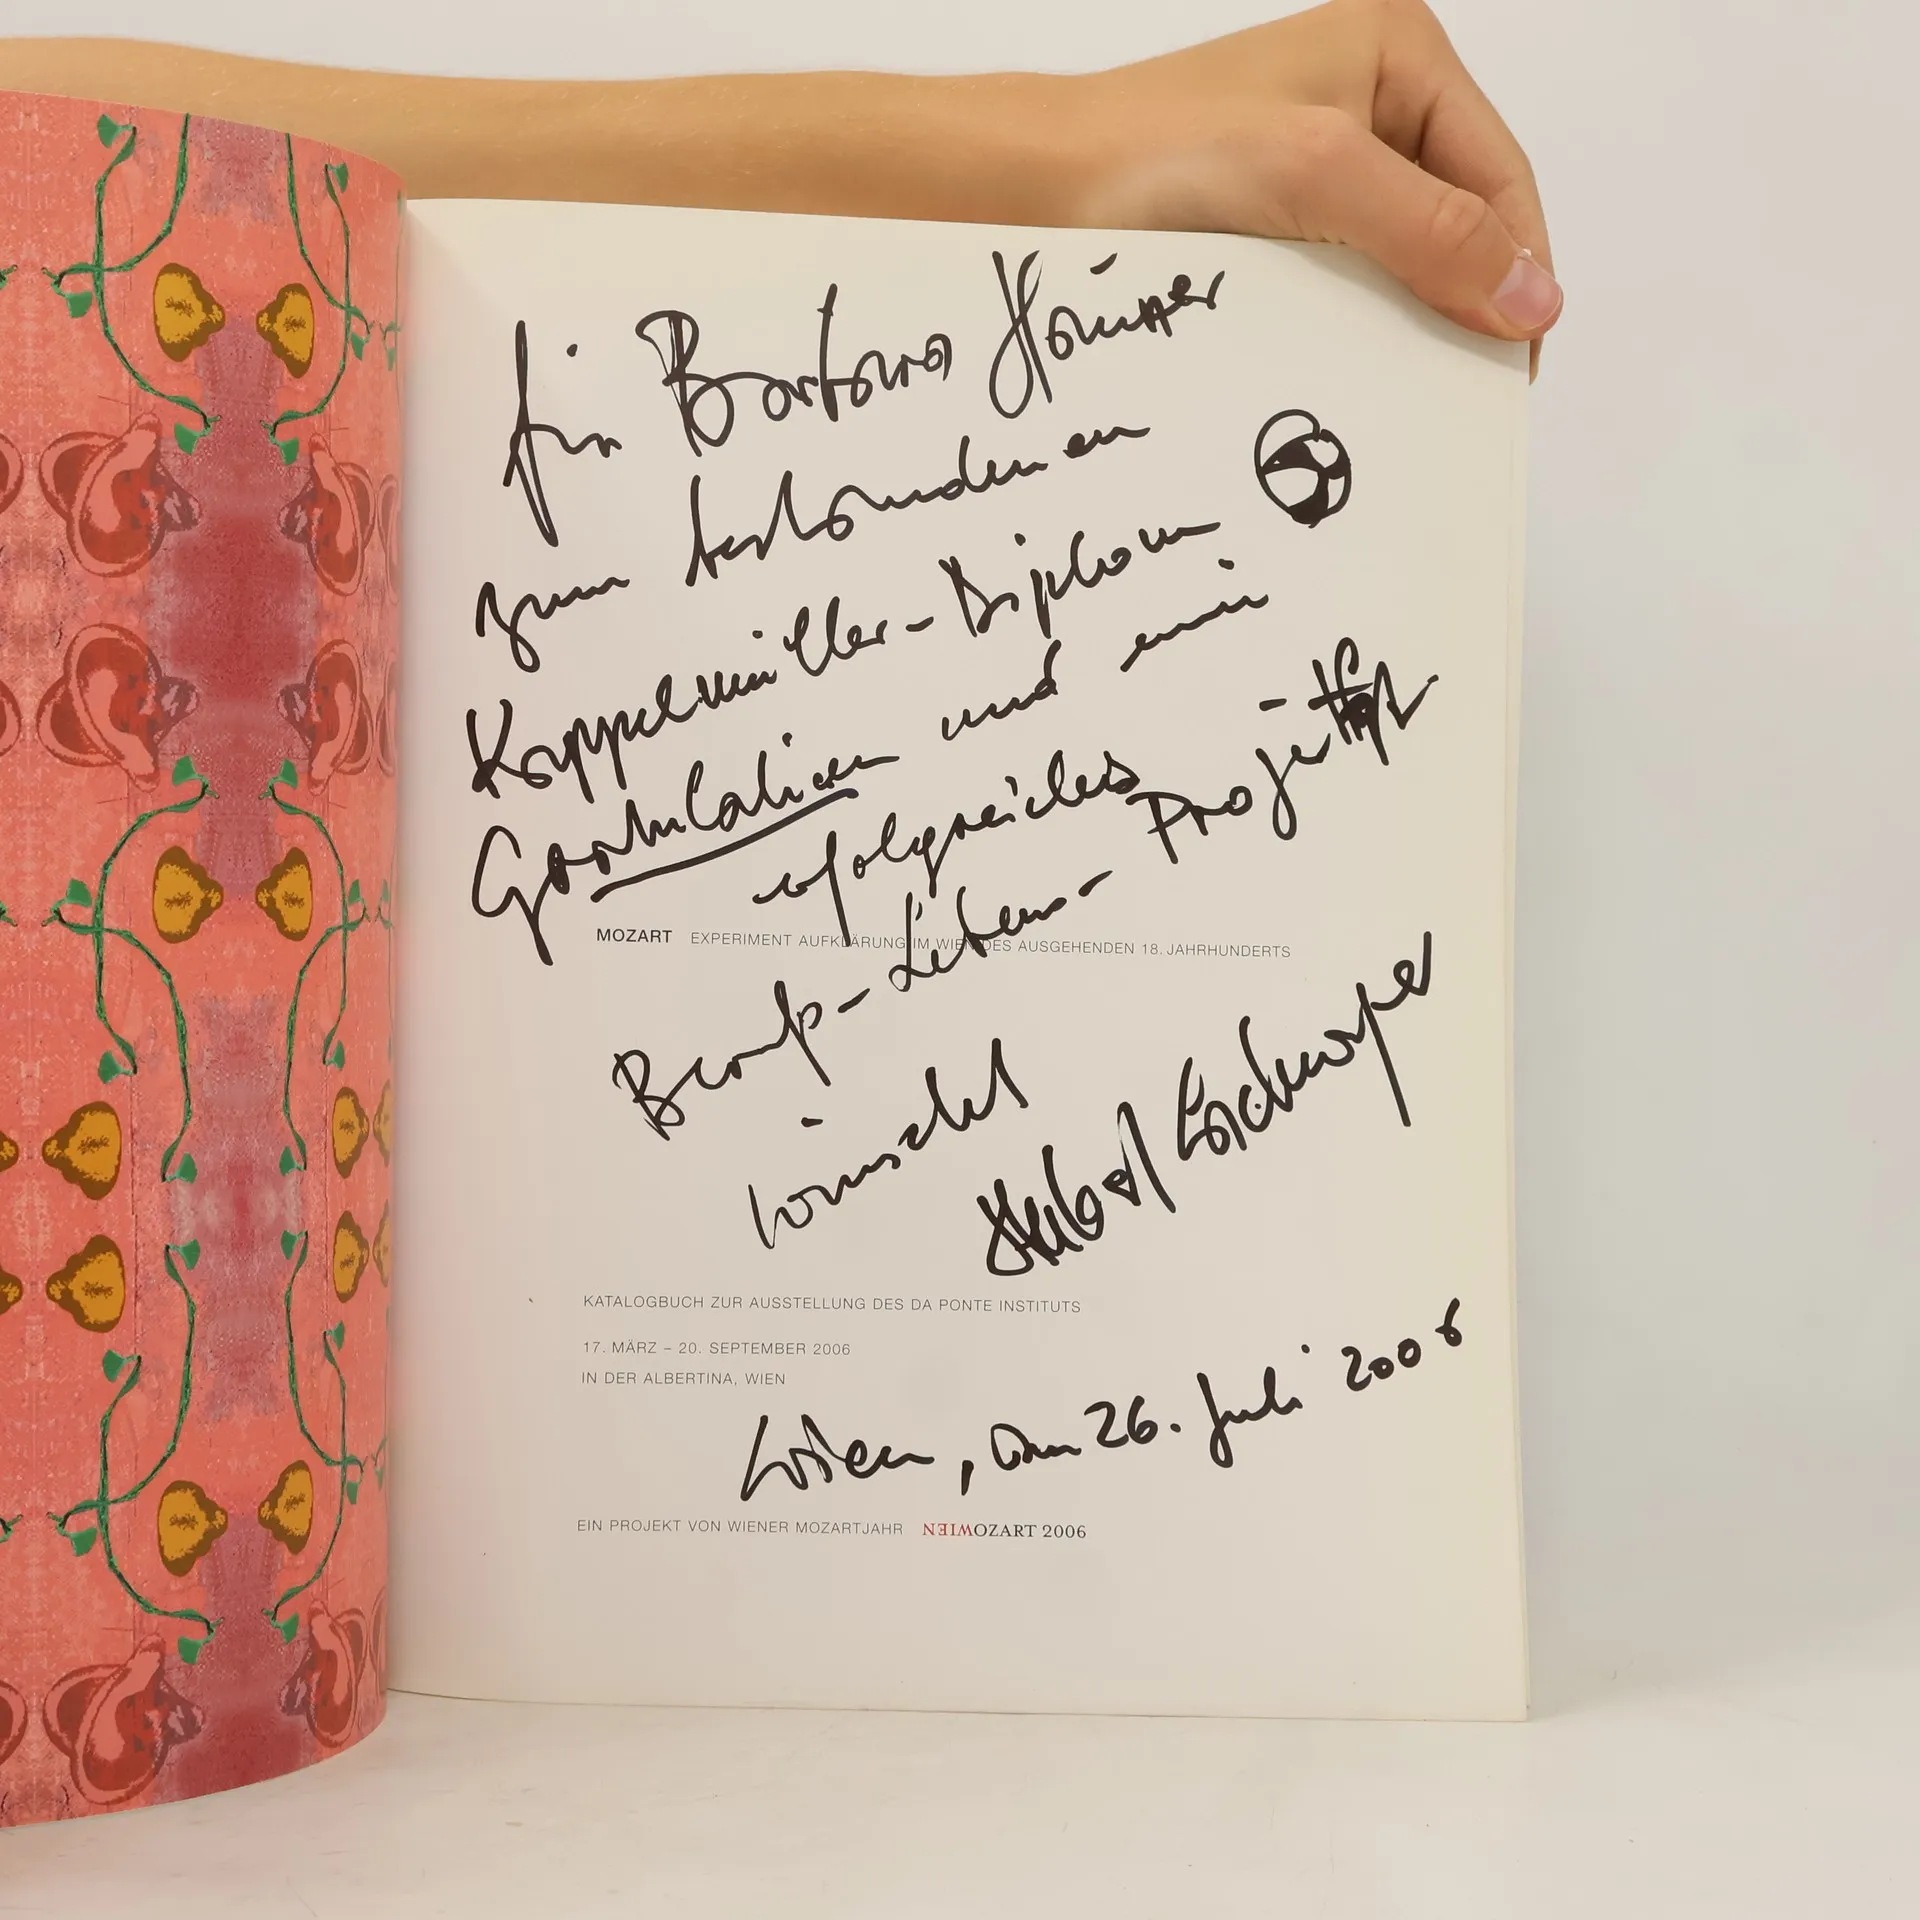 für Barbara
zum bestandenen
Koppelmüller-Diplom
Gratulation und ein
erfolgreiches
Berufs-Lebens-Projekt
wünscht
Herbert Lachmayer
MOZART EXPERIMENT AUFKLÄRUNG IM WIEN DES AUSGEHENDEN 18. JAHRHUNDERTS
KATALOGBUCH ZUR AUSSTELLUNG DES DA PONTE INSTITUTS
17. MÄRZ – 20. SEPTEMBER 2006
IN DER ALBERTINA, WIEN
Wien, am 26. Juli 2006
EIN PROJEKT VON WIENER MOZARTJAHR WIENMOZART 2006